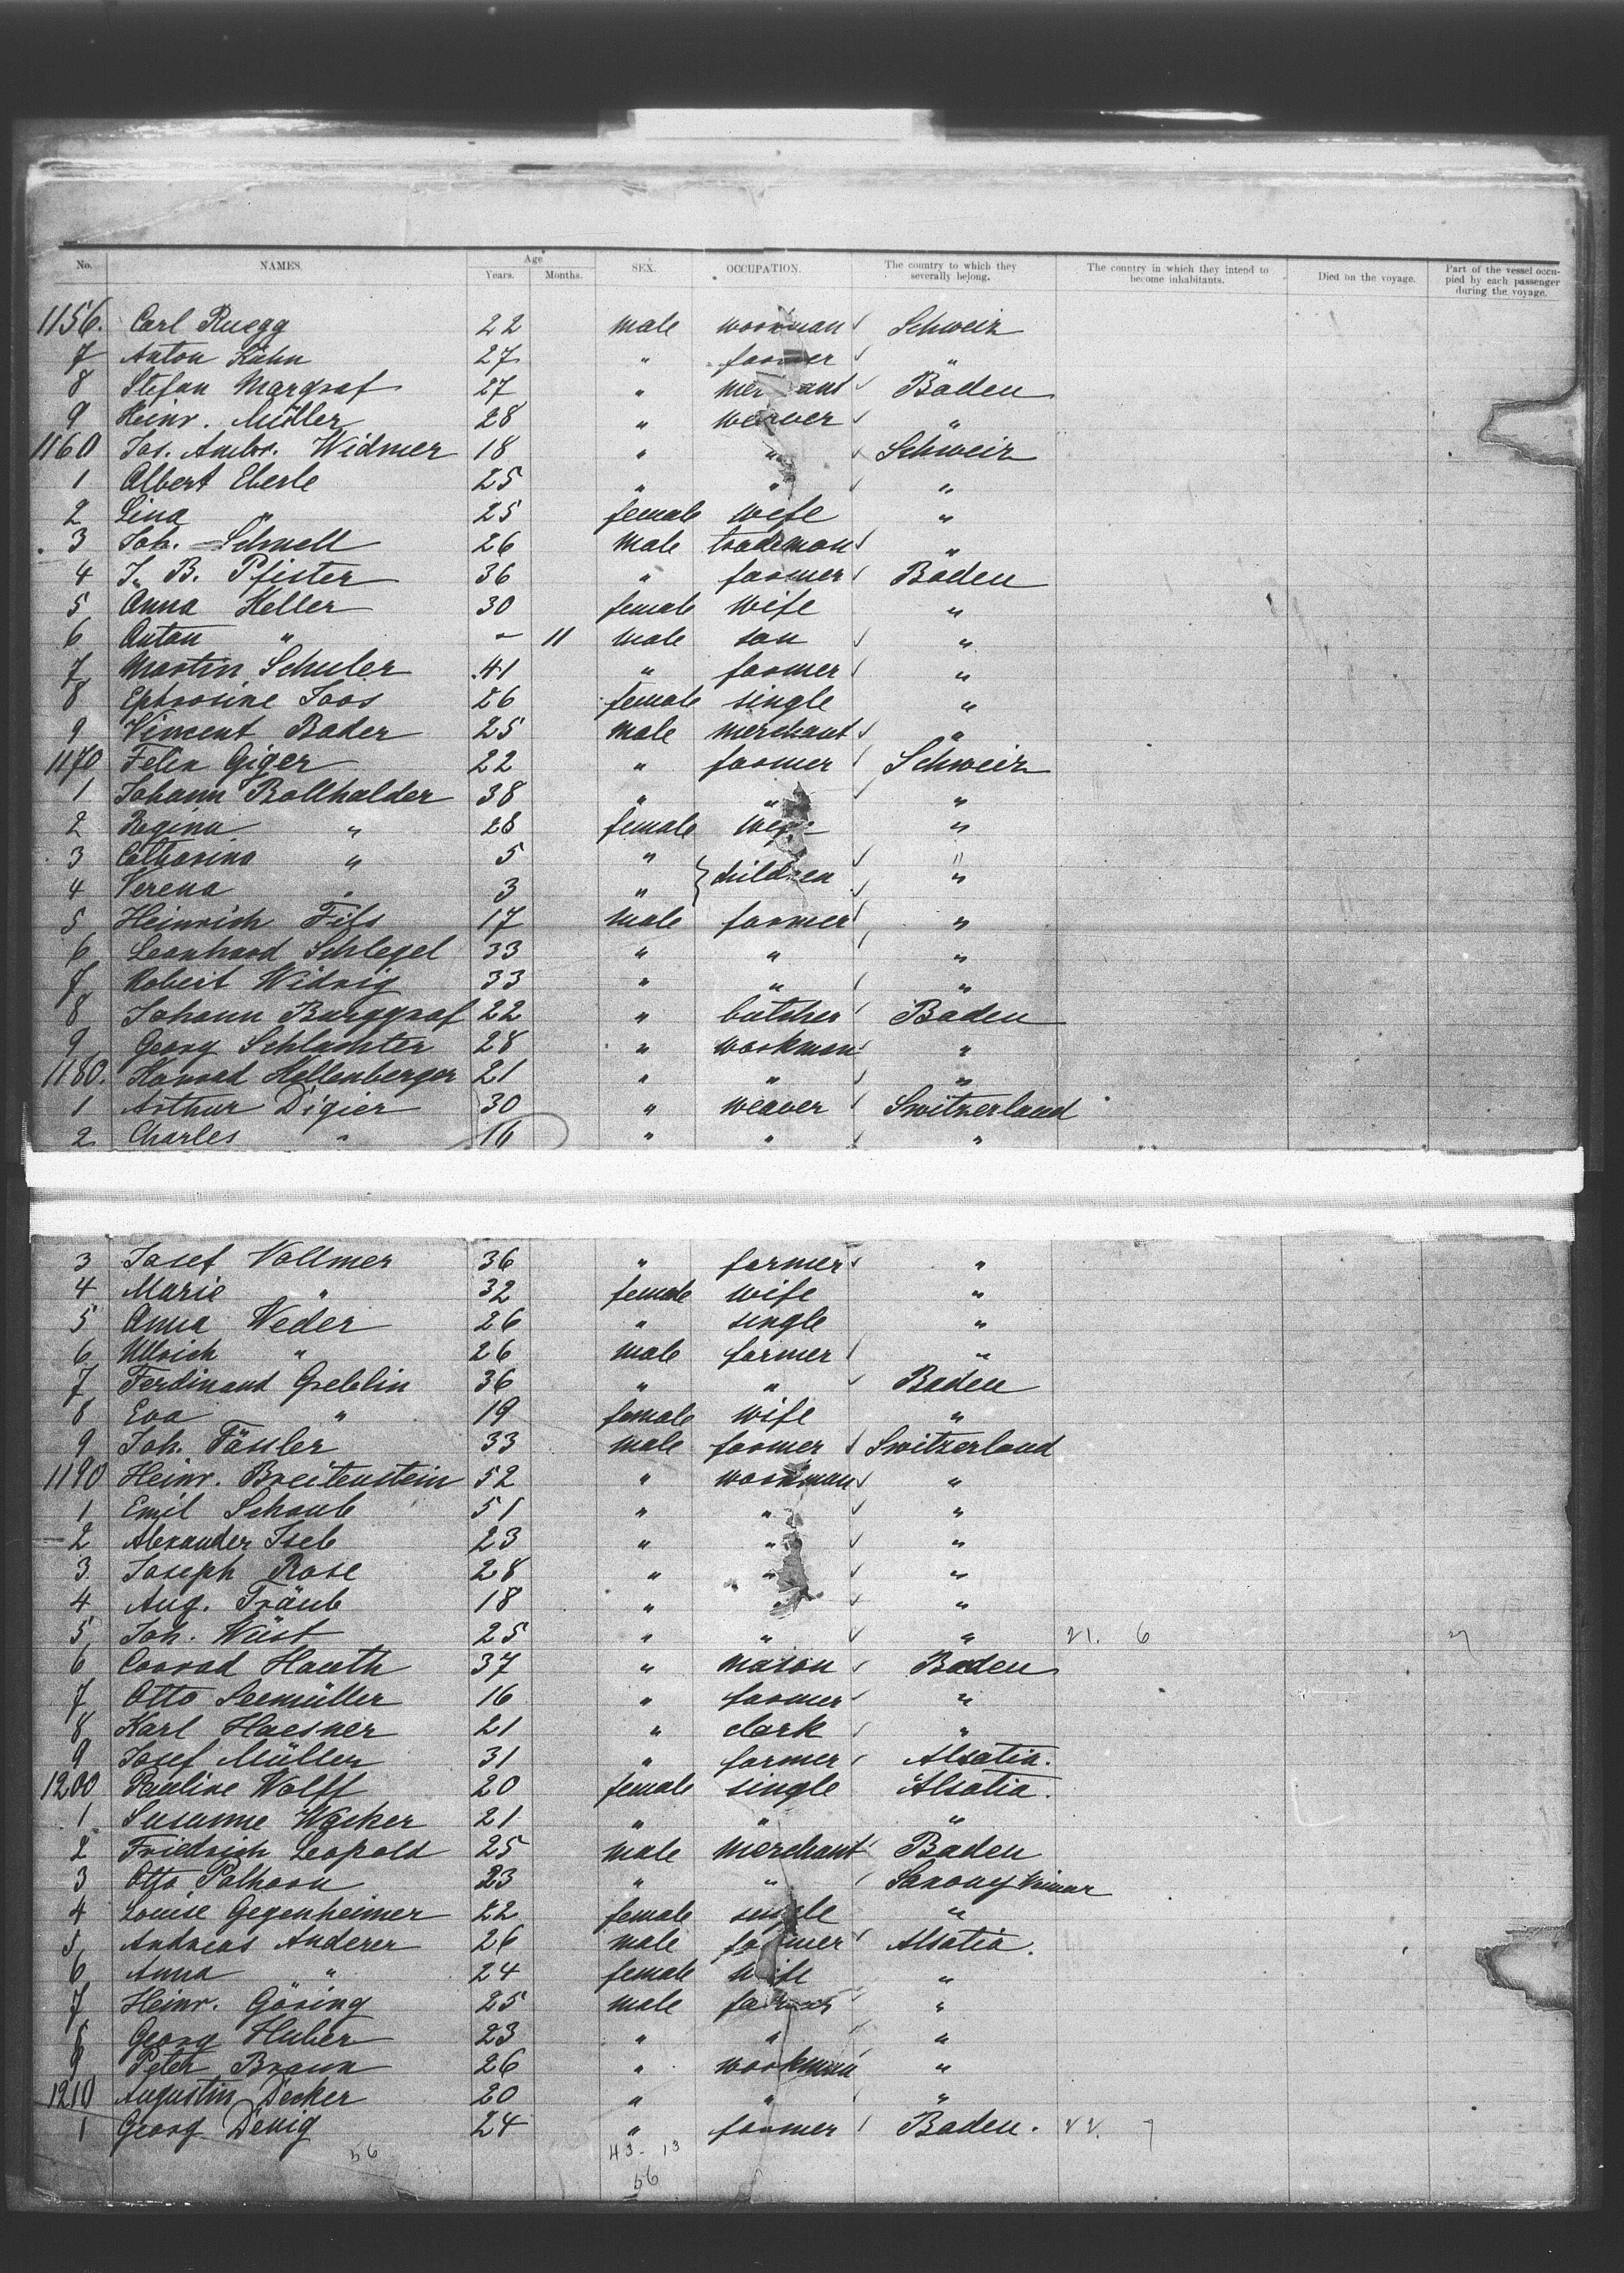 No. NAMES. Age Years. Months. SEX. OCCUPATION. The country to which they severally belong. The country in which they intend to become inhabitants. Died on the voyage. Part of the vessel occupied by each passenger during the voyage.
1156. Carl Ruegg 22 male workman Schweiz
7 Anton Kuhn 27 " farmer "
8 Stefan Margraf 27 " mer ant Baden
9 Heinr. Müller 28 " weaver "
1160 Jos. Ambr. Widmer 18 " " Schweiz
1 Albert Eberle 25 " " "
2 Lina " 25 female wife "
3 Joh. Schnell 26 male trademan "
4 J. B. Pfister 36 " farmer Baden
5 Anna Keller 30 female wife "
6 Anton " - 11 male son "
7 Martin Schuler 41 " farmer "
8 Ephrosine Joos 26 female single "
9 Vincent Bader 25 male merchant "
1170 Felix Giger 22 " farmer Schweiz
1 Johann Bollhalder 38 " " "
2 Regina " 28 female wife "
3 Catharina " 5 " } children "
4 Verena " 3 " "
5 Heinrich Fils 17 male farmer "
6 Leonhard Schlegel 33 " " "
7 Robert Widrig 33 " " "
8 Johann Burggraf 22 " butcher Baden
9 Georg Schlachter 28 " workman "
1180. Konrad Hollenberger 21 " " "
1 Arthur Digier 30 " weaver Switzerland
2 Charles " 16 " " "
3 Josef Vollmer 36 " farmer "
4 Marie " 32 female wife "
5 Anna Weder 26 " single "
6 Ullrich " 26 male farmer "
7 Ferdinand Greblin 36 " " Baden
8 Eva " 19 female wife "
9 Joh. Fässler 33 male farmer Switzerland
1190 Heinr. Breitenstein 52 " workman "
1 Emil Schaub 51 " " "
2 Alexander Iseb 23 " " "
3 Joseph Rose 28 " " "
4 Aug. Träub 18 " " "
5 Joh. Wüst 25 " " " 21. 6
6 Conrad Hauth 37 " mason Baden
7 Otto Seemüller 16 " farmer "
8 Karl Haesner 21 " clark "
9 Josef Müller 31 " farmer Alsatia.
1200 Pauline Wolff 20 female single Alsatia.
1 Susanne Wacker 21 " " "
2 Friedrich Leopold 25 male merchant Baden
3 Otto Polhorn 23 " " Saxony Weimar
4 Louise Gegenheimer 22 female single "
5 Andreas Anderer 26 male farmer Alsatia.
6 Anna " 24 female wife "
7 Heinr. Göring 25 male farmer "
8 Georg Huber 23 " " "
9 Peter Braun 26 " workman "
1210 Augustin Decker 20 " " "
1 Georg Denig 24 " farmer Baden.
56 43 - 13
56